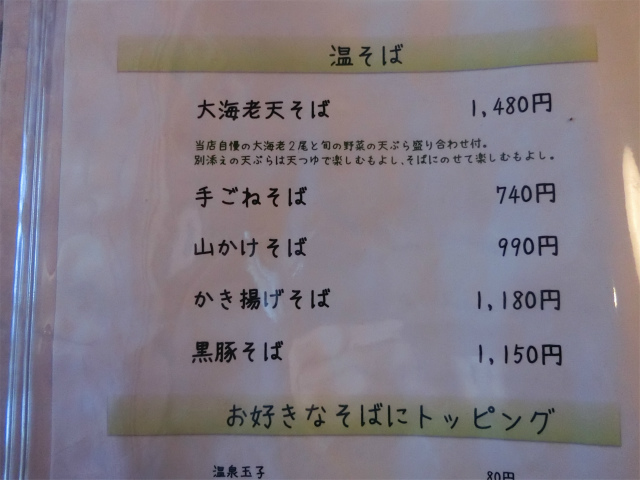 温そば
大海老天そば 1,480円
当店自慢の大海老2尾と旬の野菜の天ぷら盛り合わせ付。
別添えの天ぷらは天つゆで楽しむもよし、そばにのせて楽しむもよし。
手ごねそば 740円
山かけそば 990円
かき揚げそば 1,180円
黒豚そば 1,150円
お好きなそばにトッピング
温泉玉子 80円